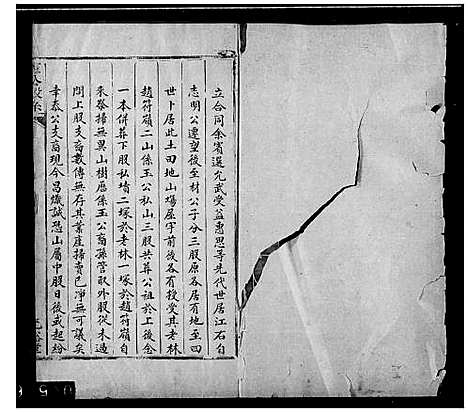 立合同余賓選允武受益惠思等先代世居江右自
志明公遷望後至材公子分三股原各居有地至四
世卜居此土田地山場屋宇前後各有授受其老林
趙符嶺二山係玉公私山三股共葬公祖於上後念
一本併葬下股私墳二塚於老林一塚於趙符嶺自
來祭掃無異山樹應係玉公裔孫管取外股從未過
問上股支裔數傳無存其業產掃賣已凈無可議矣
幸泰公支裔現今昌熾誠恐山屬中股日後或起紛